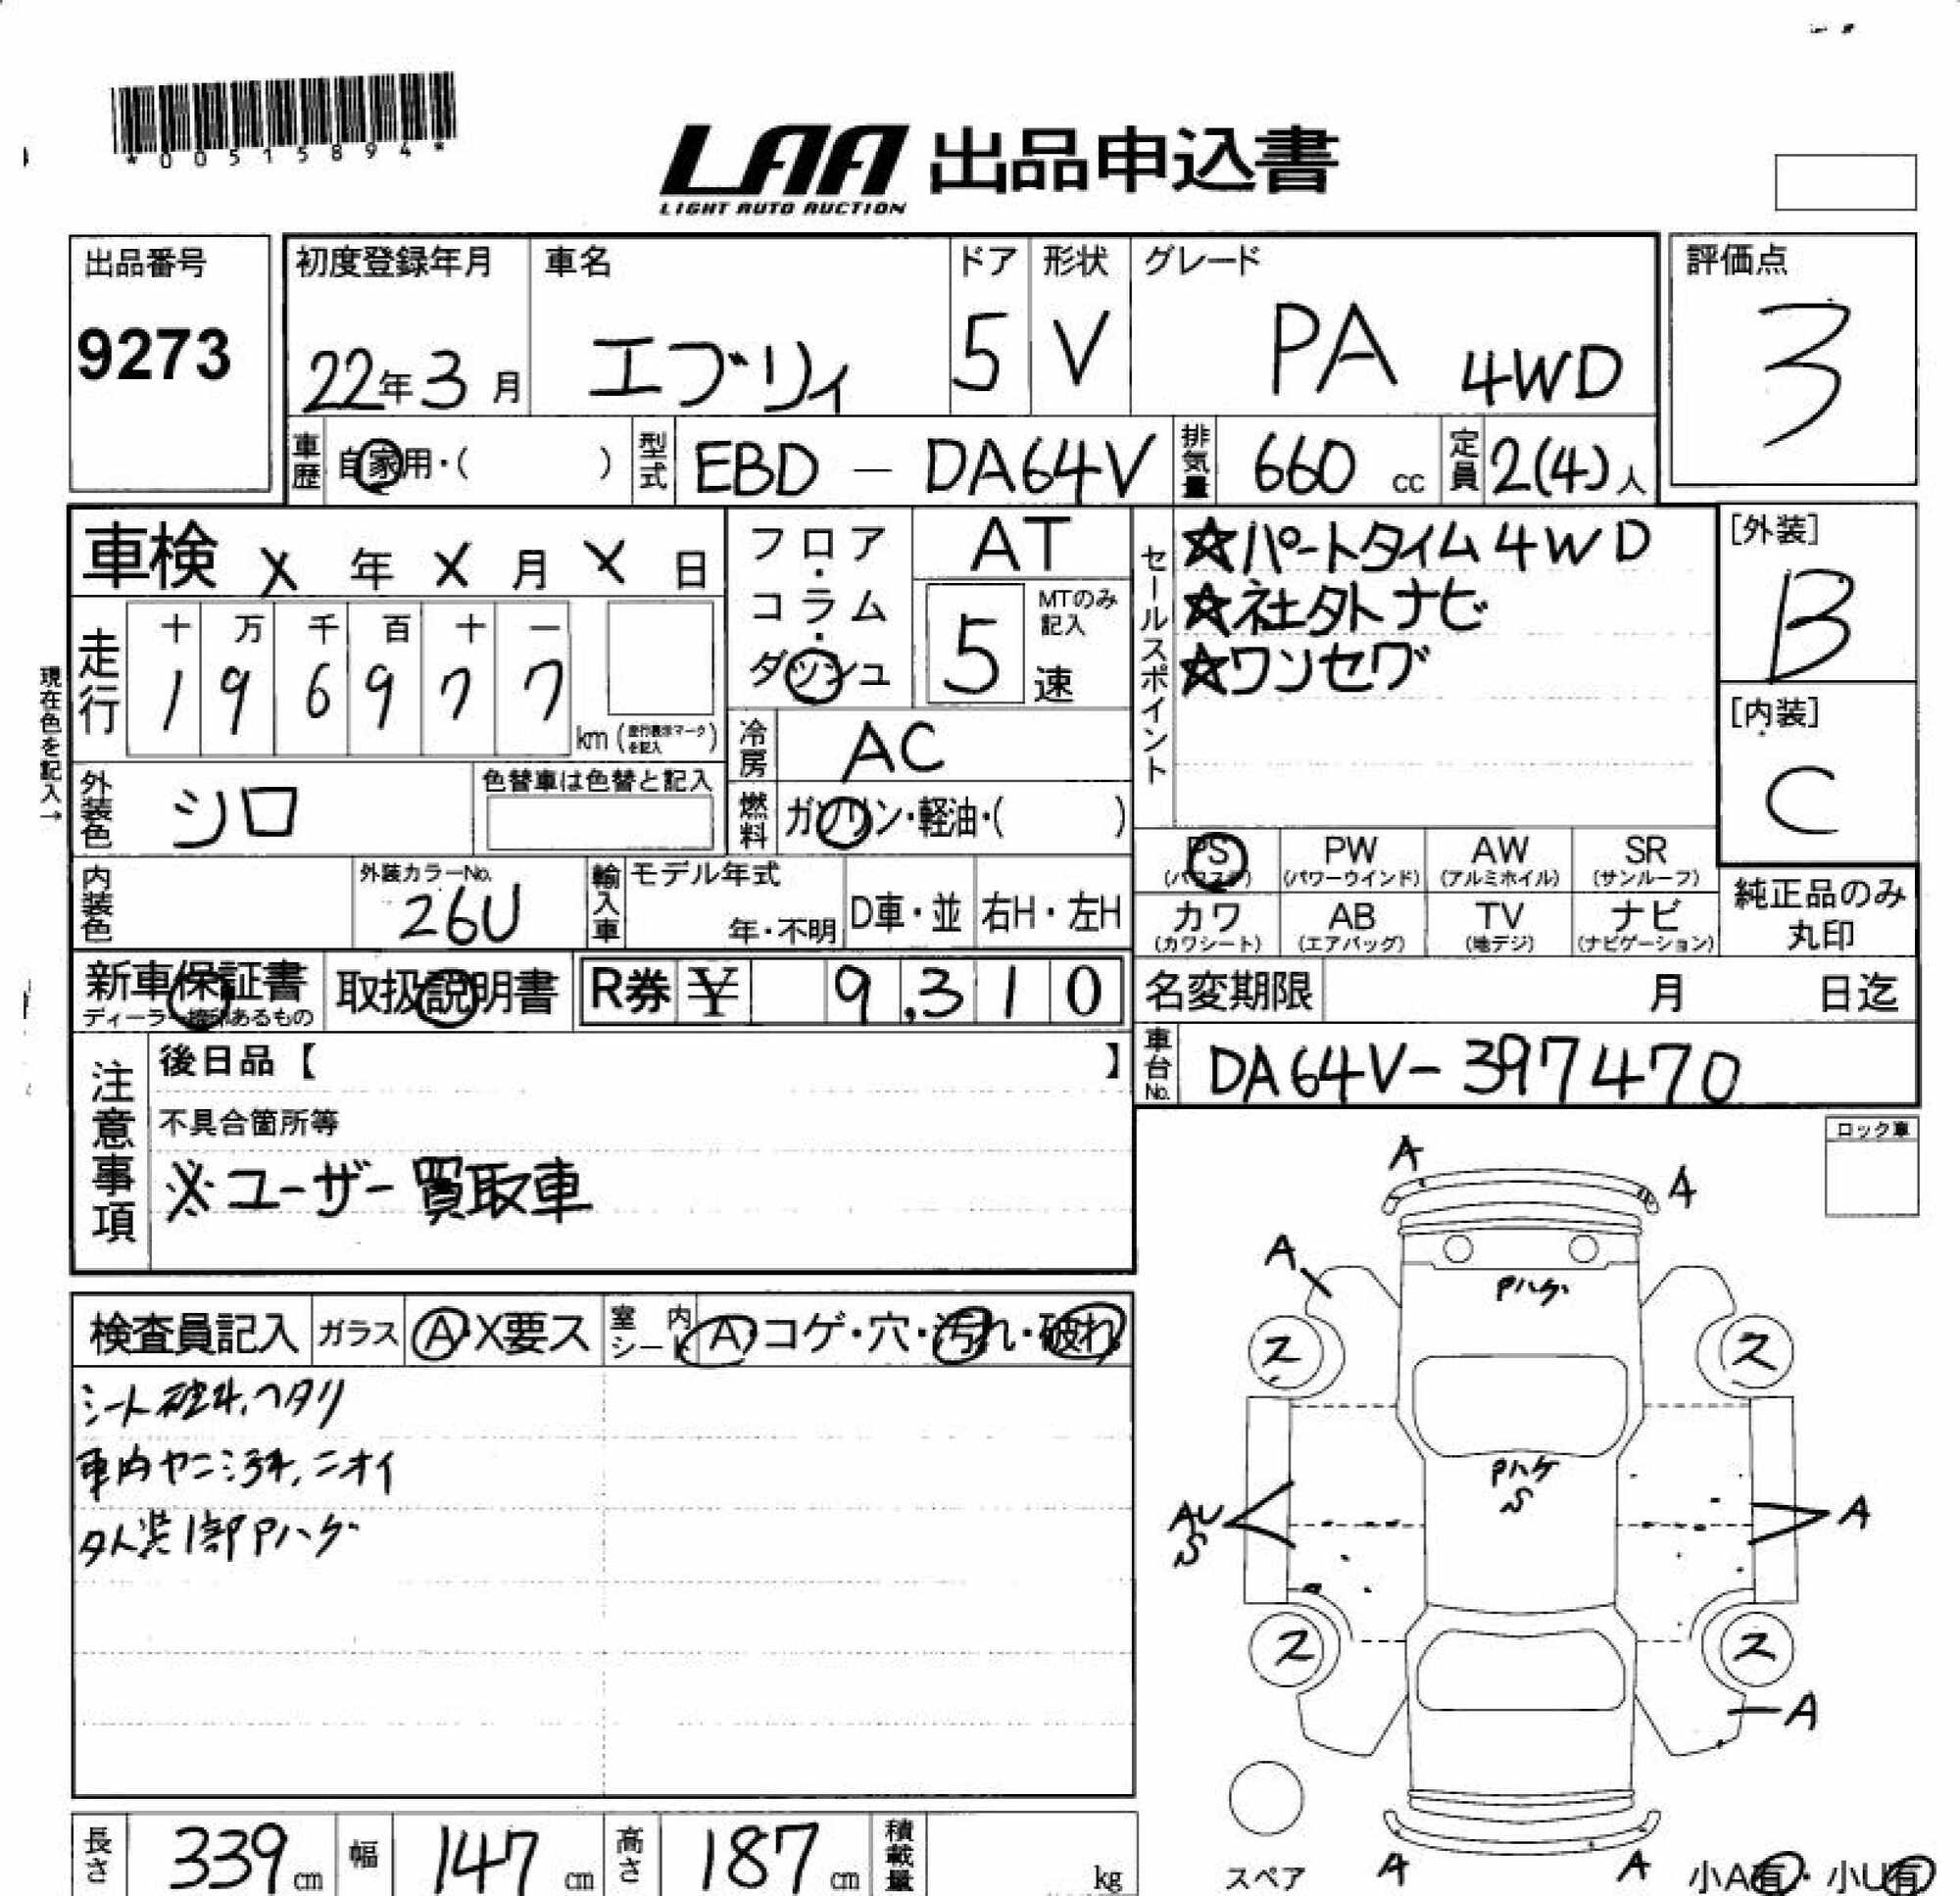 *00515894*
LAA 出品申込書
LIGHT AUTO AUCTION
出品番号
9273
初度登録年月
22年3月
車名
エブリィ
ドア
5
形状
V
グレード
PA 4WD
評価点
3
車歴
自家用・( )
型式
EBD - DA64V
排気量
660 cc
定員
2(4)人
車検 X年X月X日
フロア・コラム・ダッシュ
AT
5 速
MTのみ記入
セールスポイント
☆パートタイム4WD
☆社外ナビ
☆ワンセグ
[外装]
B
[内装]
C
現在色を記入→
走行
十 万 千 百 十 一
1 9 6 9 7 7 km (走行表示マークを記入)
冷房
AC
燃料
ガソリン・軽油・( )
外装色
シロ
色替車は色替と記入
内装色
外装カラーNo.
26U
輸入車
モデル年式
年・不明
D車・並
右H・左H
PS
(パワステ)
PW
(パワーウインド)
AW
(アルミホイル)
SR
(サンルーフ)
カワ
(カワシート)
AB
(エアバッグ)
TV
(地デジ)
ナビ
(ナビゲーション)
純正品のみ
丸印
新車保証書
ディーラー捺印あるもの
取扱説明書
R券 ¥ 9,310
名変期限 月 日迄
車台No.
DA64V-397470
注意事項
後日品【 】
不具合箇所等
※ユーザー買取車
ロック車
検査員記入
ガラス
A・X要ス
室内シート
A・コゲ・穴・汚れ・破れ
シート破れ、ヘタリ
車内ヤニ汚れ、ニオイ
外装1部Pハゲ
A
A
A
Pハゲ
ス
ス
Pハゲ
S
AU
S
A
ス
ス
A
スペア
A
A
小A有・小U有
長さ
339 cm
幅
147 cm
高さ
187 cm
積載量
kg